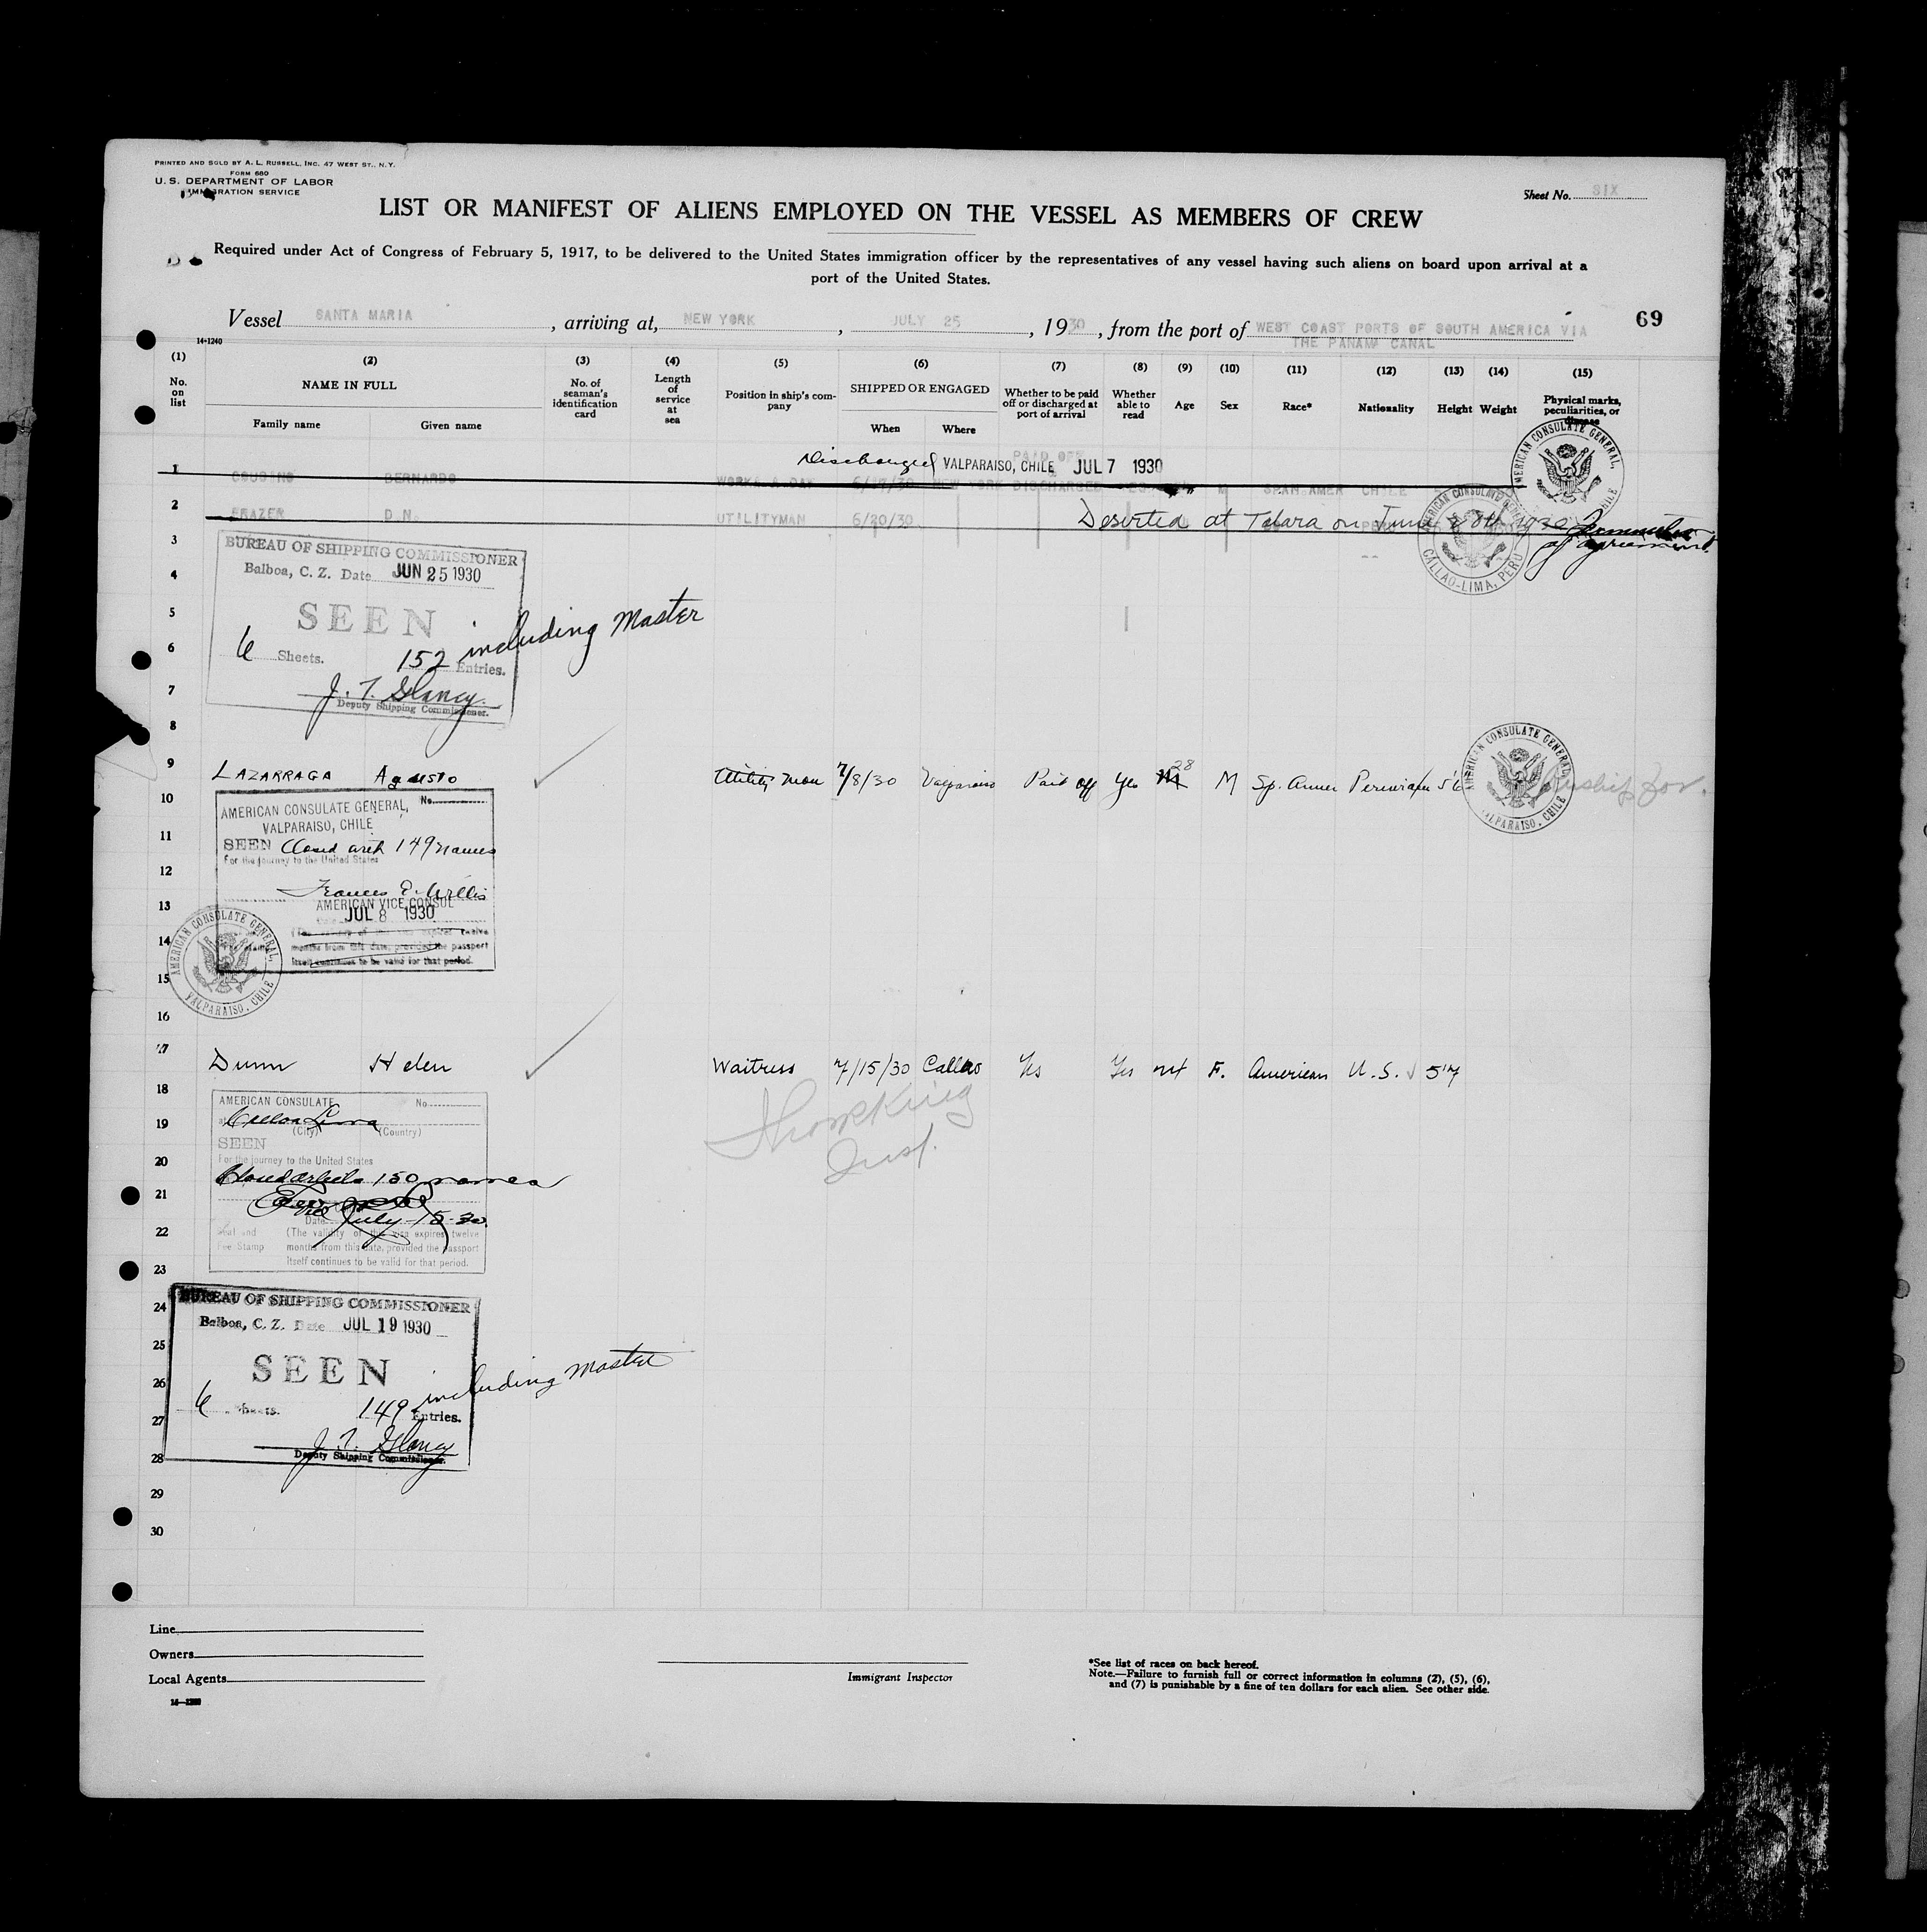 PRINTED AND SOLD BY A. L. RUSSELL, INC. 47 WEST ST., N.Y.
FORM 680
U. S. DEPARTMENT OF LABOR
IMMIGRATION SERVICE
Sheet No. SIX
LIST OR MANIFEST OF ALIENS EMPLOYED ON THE VESSEL AS MEMBERS OF CREW
Required under Act of Congress of February 5, 1917, to be delivered to the United States immigration officer by the representatives of any vessel having such aliens on board upon arrival at a
port of the United States.
Vessel SANTA MARIA, arriving at, NEW YORK, JULY 25, 1930, from the port of WEST COAST PORTS OF SOUTH AMERICA VIA
THE PANAMA CANAL
69
14-1240
(1) (2) (3) (4) (5) (6) (7) (8) (9) (10) (11) (12) (13) (14) (15)
No. on list
NAME IN FULL
Family name Given name
No. of seaman's identification card
Length of service at sea
Position in ship's company
SHIPPED OR ENGAGED
When Where
Whether to be paid off or discharged at port of arrival
Whether able to read
Age
Sex
Race*
Nationality
Height
Weight
Physical marks, peculiarities, or disease
Discharged VALPARAISO, CHILE JUL 7 1930
PAID OFF
1 COUSINO BERNARDO NEW YORK DISCHARGED M SPAN.AMER CHILE
2 FRAZER D.N. UTILITYMAN 6/20/30 Deserted at Talara on June 28th 1930
of agreement.
AMERICAN CONSULATE GENERAL, CHILE
AMERICAN CONSULATE GENERAL CALLAO-LIMA, PERU
3
BUREAU OF SHIPPING COMMISSIONER
4
Balboa, C. Z. Date JUN 25 1930
5
SEEN
6
6 Sheets. 152 including Master Entries.
7
J. T. Glancy
Deputy Shipping Commissioner.
8
9 LAZARRAGA Agusto Utility man 7/8/30 Valparaiso Paid off Yes 28 M Sp. Amer Peruvian 5'6
AMERICAN CONSULATE GENERAL, VALPARAISO, CHILE
10
AMERICAN CONSULATE GENERAL, No.
VALPARAISO, CHILE
11
SEEN Closed with 149 names
For the journey to the United States
12
Frances E. Willis
AMERICAN VICE CONSUL
13
JUL 8 1930
14
months from this date, provided the passport
itself continues to be valid for that period.
15
AMERICAN CONSULATE GENERAL, VALPARAISO, CHILE
16
17 Dunn Helen Waitress 7/15/30 Callao Yes Yes F. American U.S. 5'7
18
AMERICAN CONSULATE No.
19
at Callao Lima
(City) (Country)
SEEN
20
For the journey to the United States
150 names
21
Date July-15-30
22
Seal and Fee Stamp
(The validity of this visa expires twelve
months from this date, provided the passport
itself continues to be valid for that period.
23
24
BUREAU OF SHIPPING COMMISSIONER
Balboa, C. Z. Date JUL 19 1930
25
SEEN
26
6 Sheets. 149 including Master
27
Entries.
J. T. Glancy
28
Deputy Shipping Commissioner.
29
30
Line
Owners
Local Agents
14-1240
Immigrant Inspector
*See list of races on back hereof.
Note.—Failure to furnish full or correct information in columns (2), (5), (6),
and (7) is punishable by a fine of ten dollars for each alien. See other side.